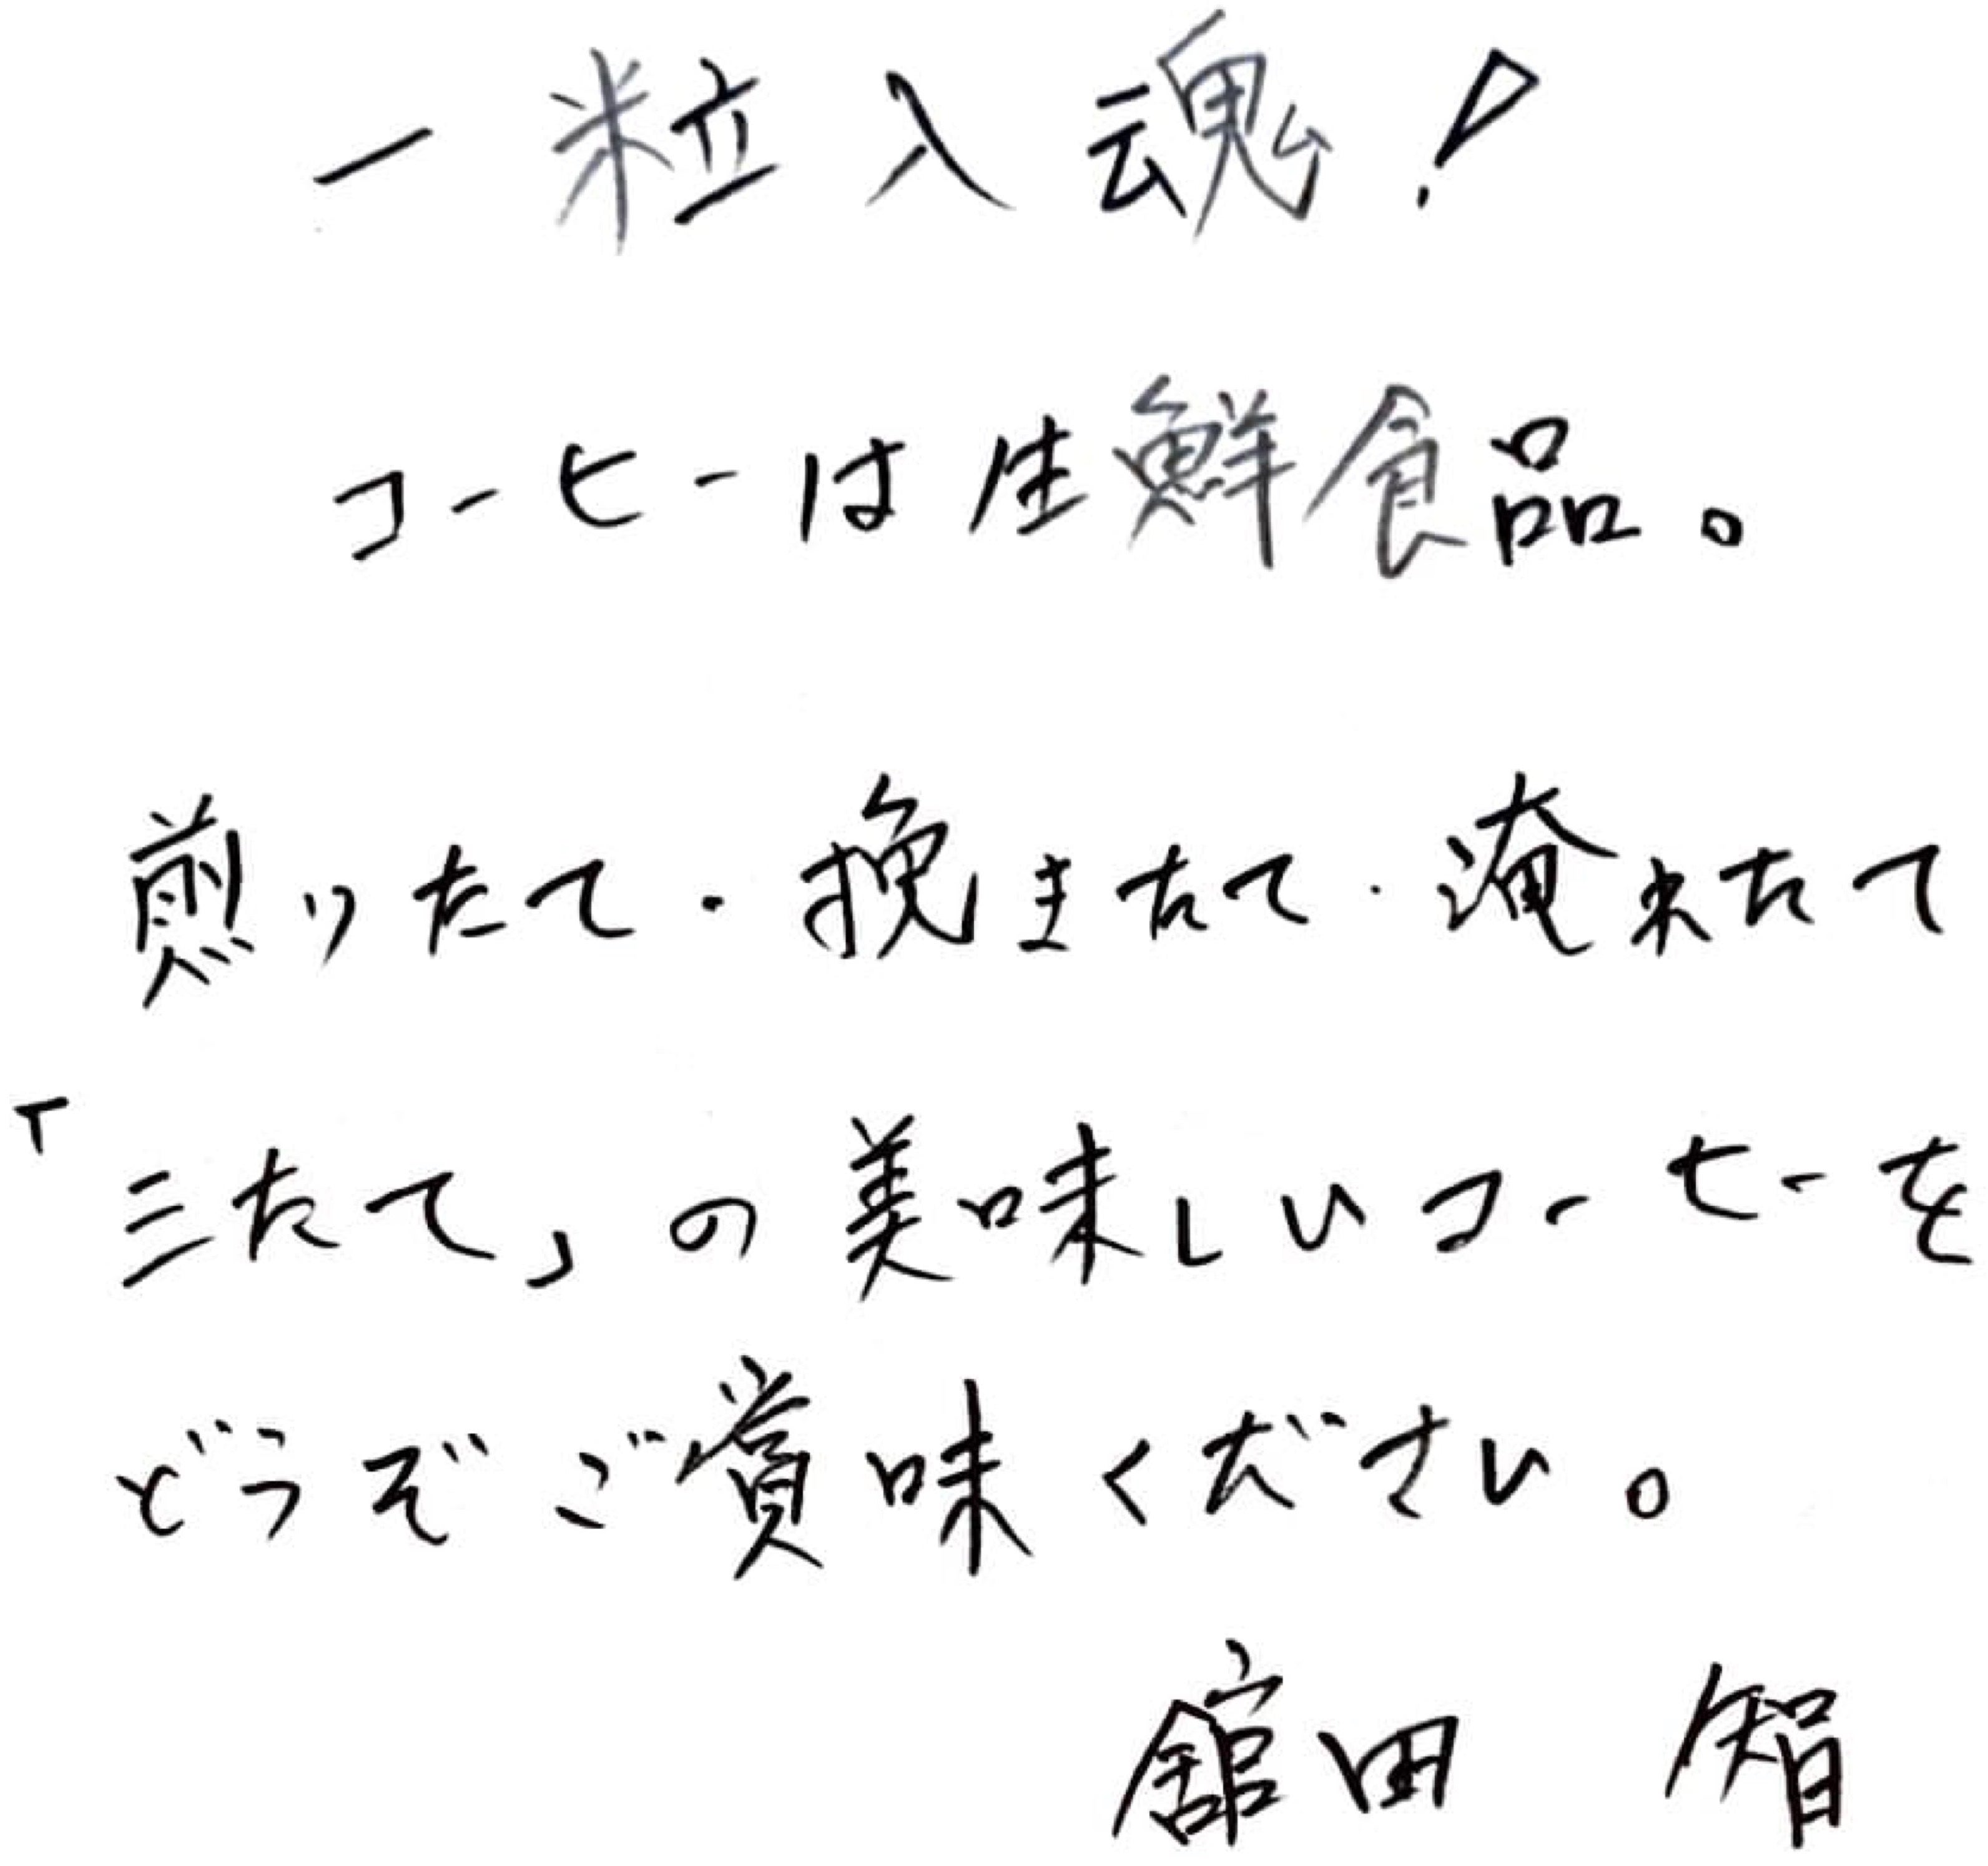 一粒入魂！
コーヒーは生鮮食品。
煎りたて・挽きたて・淹れたて
「三たて」の美味しいコーヒーを
どうぞご賞味ください。
舘田 智